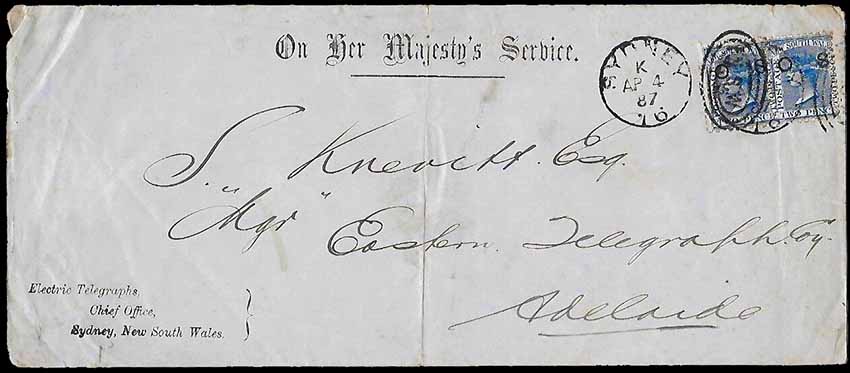 On Her Majesty's Service.
SYDNEY
K
AP 4
87
16
O S O S
SOUTH WAL
POSTAGE
TWO PENC
S. Knevitt. Esq.
"Mgr"
Eastern Telegraph. Coy.
Adelaide
Electric Telegraphs,
Chief Office,
Sydney, New South Wales.